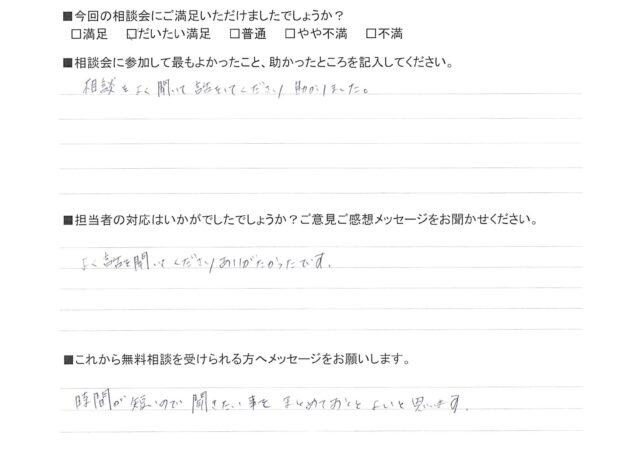 ■今回の相談会にご満足いただけましたでしょうか？
□満足 □だいたい満足 □普通 □やや不満 □不満
■相談会に参加して最もよかったこと、助かったところを記入してください。
相談をよく聞いて話をしてくださり助かりました。
■担当者の対応はいかがでしたでしょうか？ご意見ご感想メッセージをお聞かせください。
よく話を聞いてくださりありがたかったです。
■これから無料相談を受けられる方へメッセージをお願いします。
時間が短いので聞きたい事をまとめておくとよいと思います。